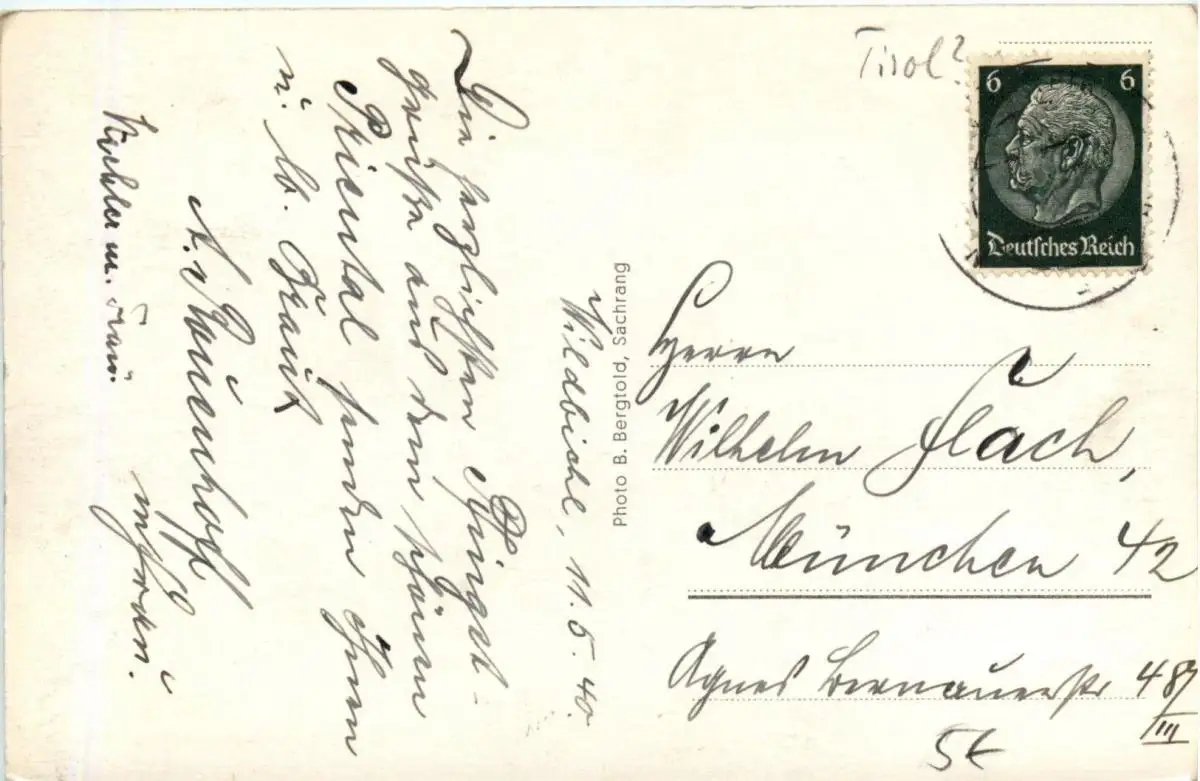 Tirol?
6 6
Deutsches Reich
Wildbichl, 11.5.40.
Die herzlichsten Pfingst-
grüße aus dem schönen
Priental senden Ihnen
u. lb. Braut
mfrau.
Photo B. Bergtold, Sachrang
Herrn
Wilhelm Flach,
München 42
Agnes Bernauerstr 487
III
5€